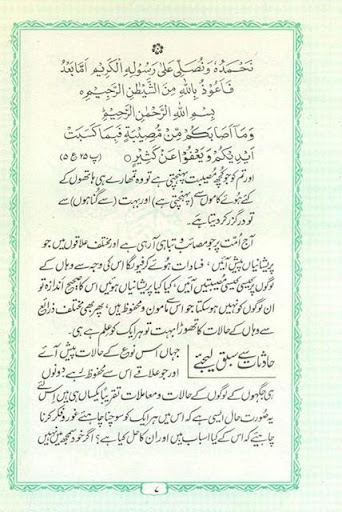 نَحْمَدُہٗ وَنُصَلِّیْ عَلٰی رَسُوْلِہِ الْکَرِیْمِ اَمَّا بَعْدُ
فَاَعُوْذُ بِاللّٰہِ مِنَ الشَّیْطٰنِ الرَّجِیْمِ
بِسْمِ اللّٰہِ الرَّحْمٰنِ الرَّحِیْمِ
وَمَا اَصَابَکُمْ مِّنْ مُّصِیْبَۃٍ فَبِمَا کَسَبَتْ
اَیْدِیْکُمْ وَیَعْفُوْا عَنْ کَثِیْرٍ (پ ۲۵ ع ۵)
اور تم کو جو کچھ مصیبت پہنچتی ہے تو وہ تمھارے ہی ہاتھوں کے
کئے ہوئے کاموں سے (پہنچتی ہے) اور بہت (سے گناہوں) سے
تو درگزر کر دیتا ہے۔
آج امّت پر جو مصائب و تباہی آ رہی ہے اور مختلف علاقوں میں جو
پریشانیاں پیش آئیں، فسادات ہوئے کرفیو لگا اس کی وجہ سے وہاں کے
لوگوں پر کیسی کیسی مصیبتیں آئیں، کیا کیا پریشانیاں ہوئیں اس کا صحیح اندازہ تو
ان لوگوں کو نہیں ہو سکتا جو اس سے مامون و محفوظ ہیں، پھر بھی مختلف ذرائع
سے وہاں کے حالات کا تھوڑا بہت تو ہر ایک کو علم ہے ہی۔
حادثات سے سبق لیجئے
جہاں اس نوع کے حالات پیش آئے
اور جو علاقے اس سے محفوظ رہے؟ دونوں
ہی جگہوں کے لوگوں کے حالات و معاملات تقریباً یکساں ہی ہیں اس لئے
یہ صورت حال ایسی ہے کہ اس میں ہر ایک کو سوچنا چاہئے غور و فکر کرنا
چاہئے کہ اس کے کیا اسباب ہیں اور ان کا حل کیا ہے؟ اگر خود سمجھ میں نہیں
۷